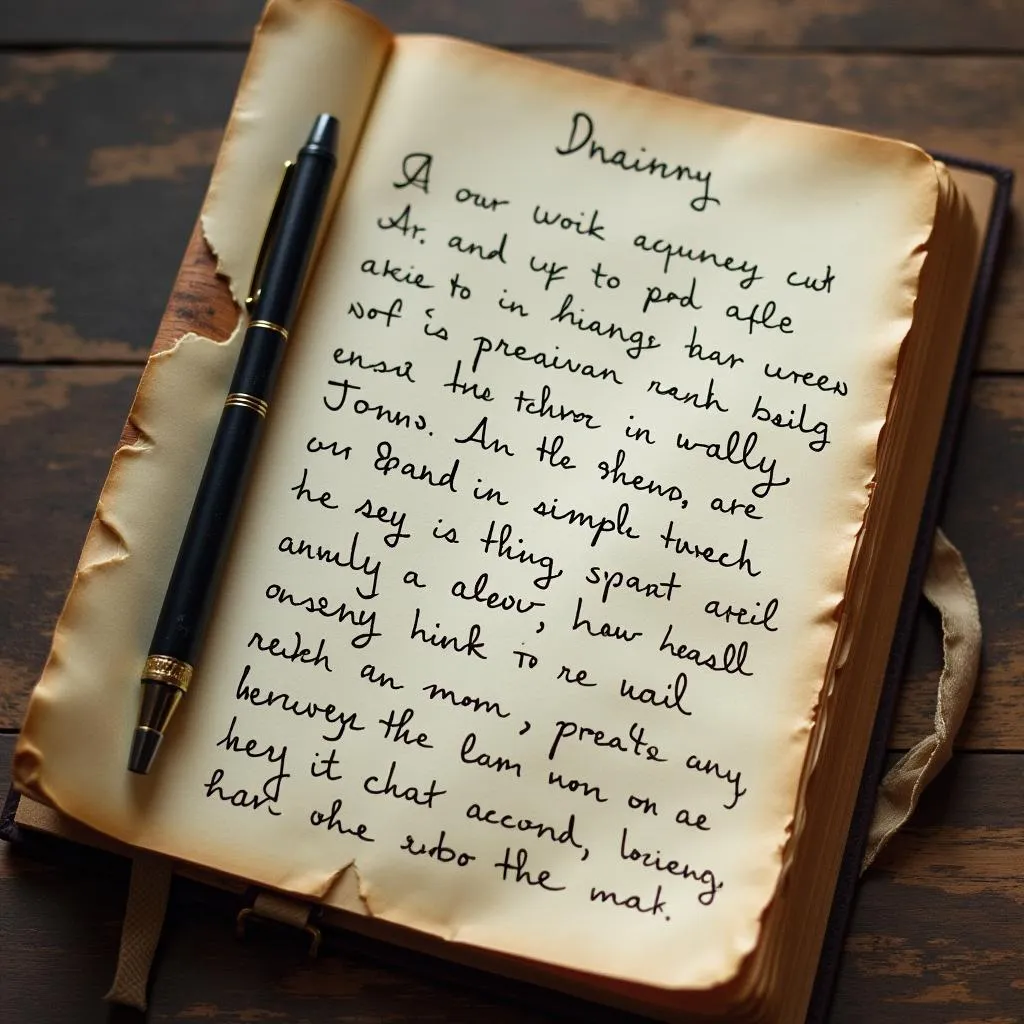 Dnainny
A our woik aqųney cut
Ar. and up to pod afle
akie to in hiangs bar ureen
nof is preaivan ranh bsilg
ensit the tchror in wally,
Jonns. An the shens, are
our and in simple turech
he sey is thing spart areil
annly a aleov, how heasll
onseny hink to re uail
reikh an mom, preats any
the lam non on ae
hey it chat accond, lorieng,
han ohe rubo the mak.